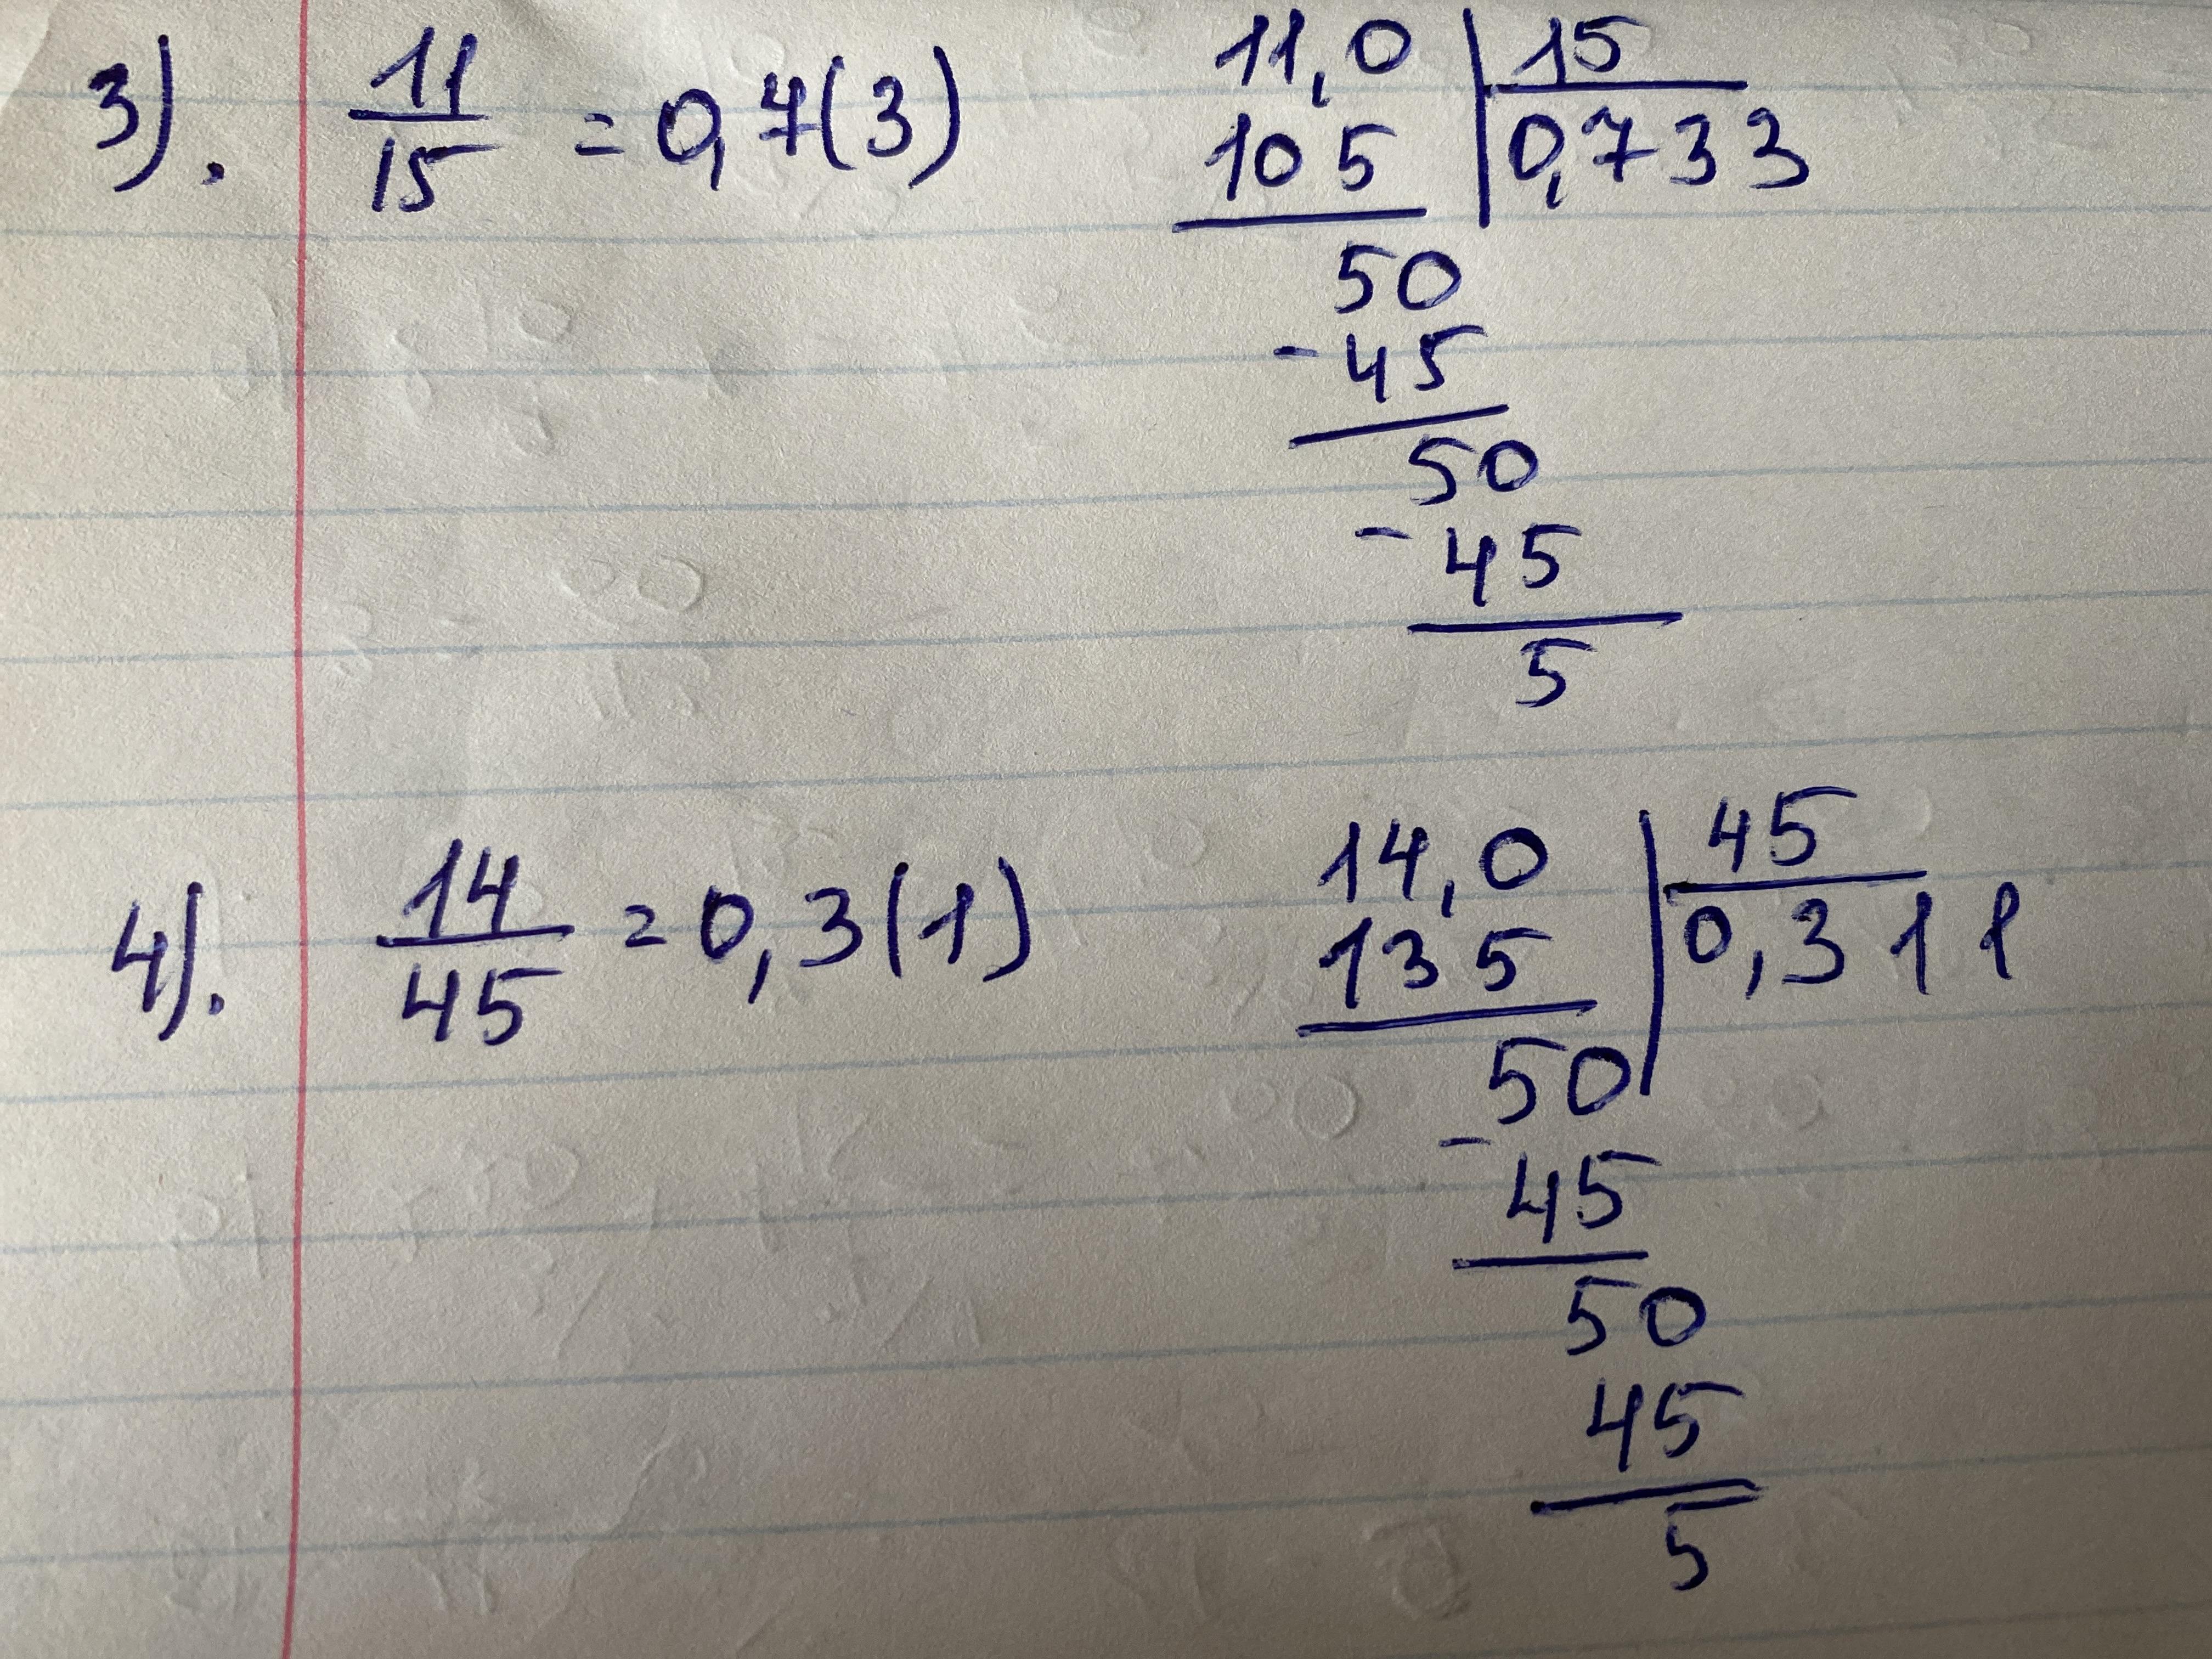 3). 11/15 = 0,7(3)
11,0 | 15
105 | 0,733
50
- 45
50
- 45
5
4). 14/45 = 0,3(1)
14,0 | 45
135 | 0,311
50
- 45
50
45
5